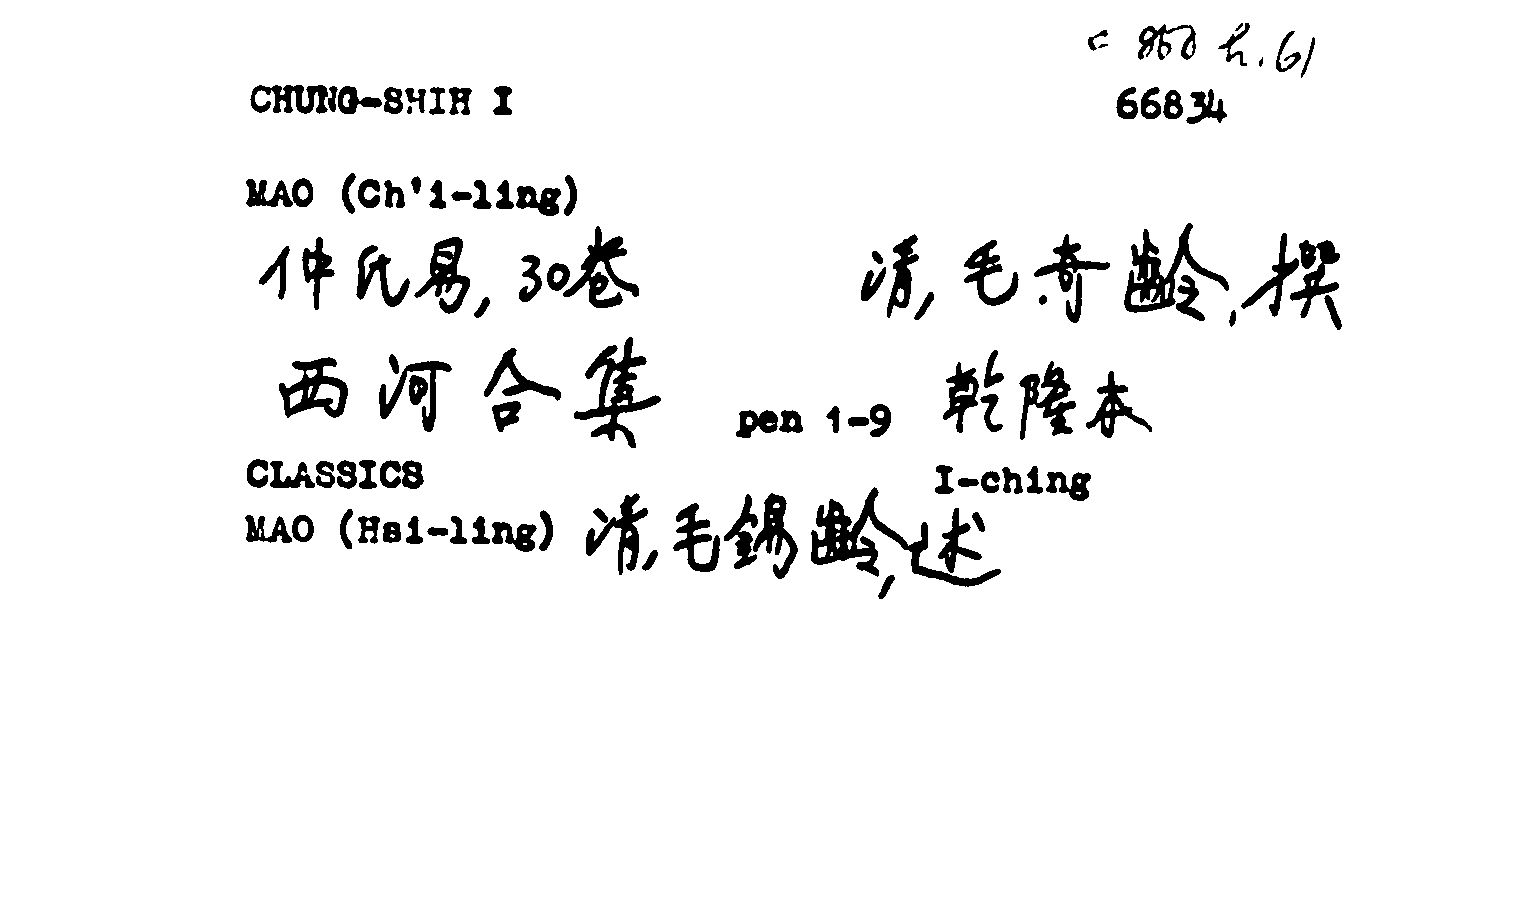 c 850 h.61
CHUNG-SHIH I 66834
MAO (Ch'i-ling)
仲氏易, 30卷 清, 毛奇齡, 撰
西河合集 pen 1-9 乾隆本
CLASSICS I-ching
MAO (Hsi-ling) 清, 毛錫齡, 述